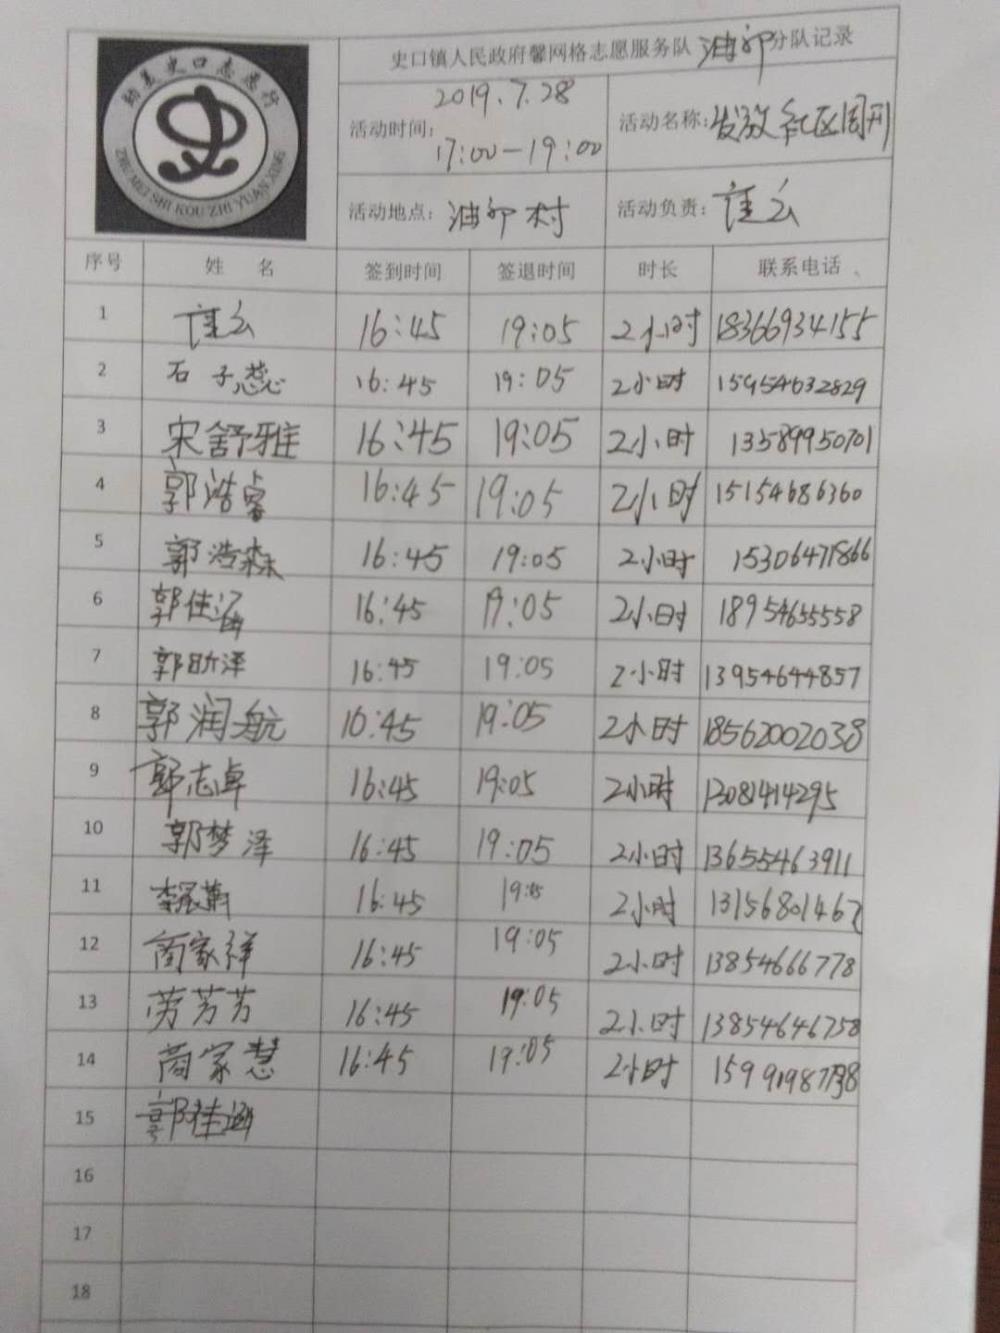 史口镇人民政府馨网格志愿服务队油郭分队记录
ZHU MEI SHI KOU ZHI YUAN XING
活动时间: 2019.7.28 17:00-19:00 活动名称: 发放社区周刊
活动地点: 油郭村 活动负责:
序号 姓名 签到时间 签退时间 时长 联系电话
1 16:45 19:05 2小时 18366934155
2 石子蕊 16:45 19:05 2小时 15954632829
3 宋舒雅 16:45 19:05 2小时 13589950701
4 郭浩睿 16:45 19:05 2小时 15154686360
5 郭浩森 16:45 19:05 2小时 15306471866
6 郭佳涵 16:45 19:05 2小时 18954655558
7 郭昕泽 16:45 19:05 2小时 13954644857
8 郭润航 16:45 19:05 2小时 18562002038
9 郭志卓 16:45 19:05 2小时 13081414295
10 郭梦泽 16:45 19:05 2小时 13655463911
11 16:45 19:05 2小时 13156801467
12 商家祥 16:45 19:05 2小时 13854666778
13 劳芳芳 16:45 19:05 2小时 13854646758
14 商家慧 16:45 19:05 2小时
15
16
17
18